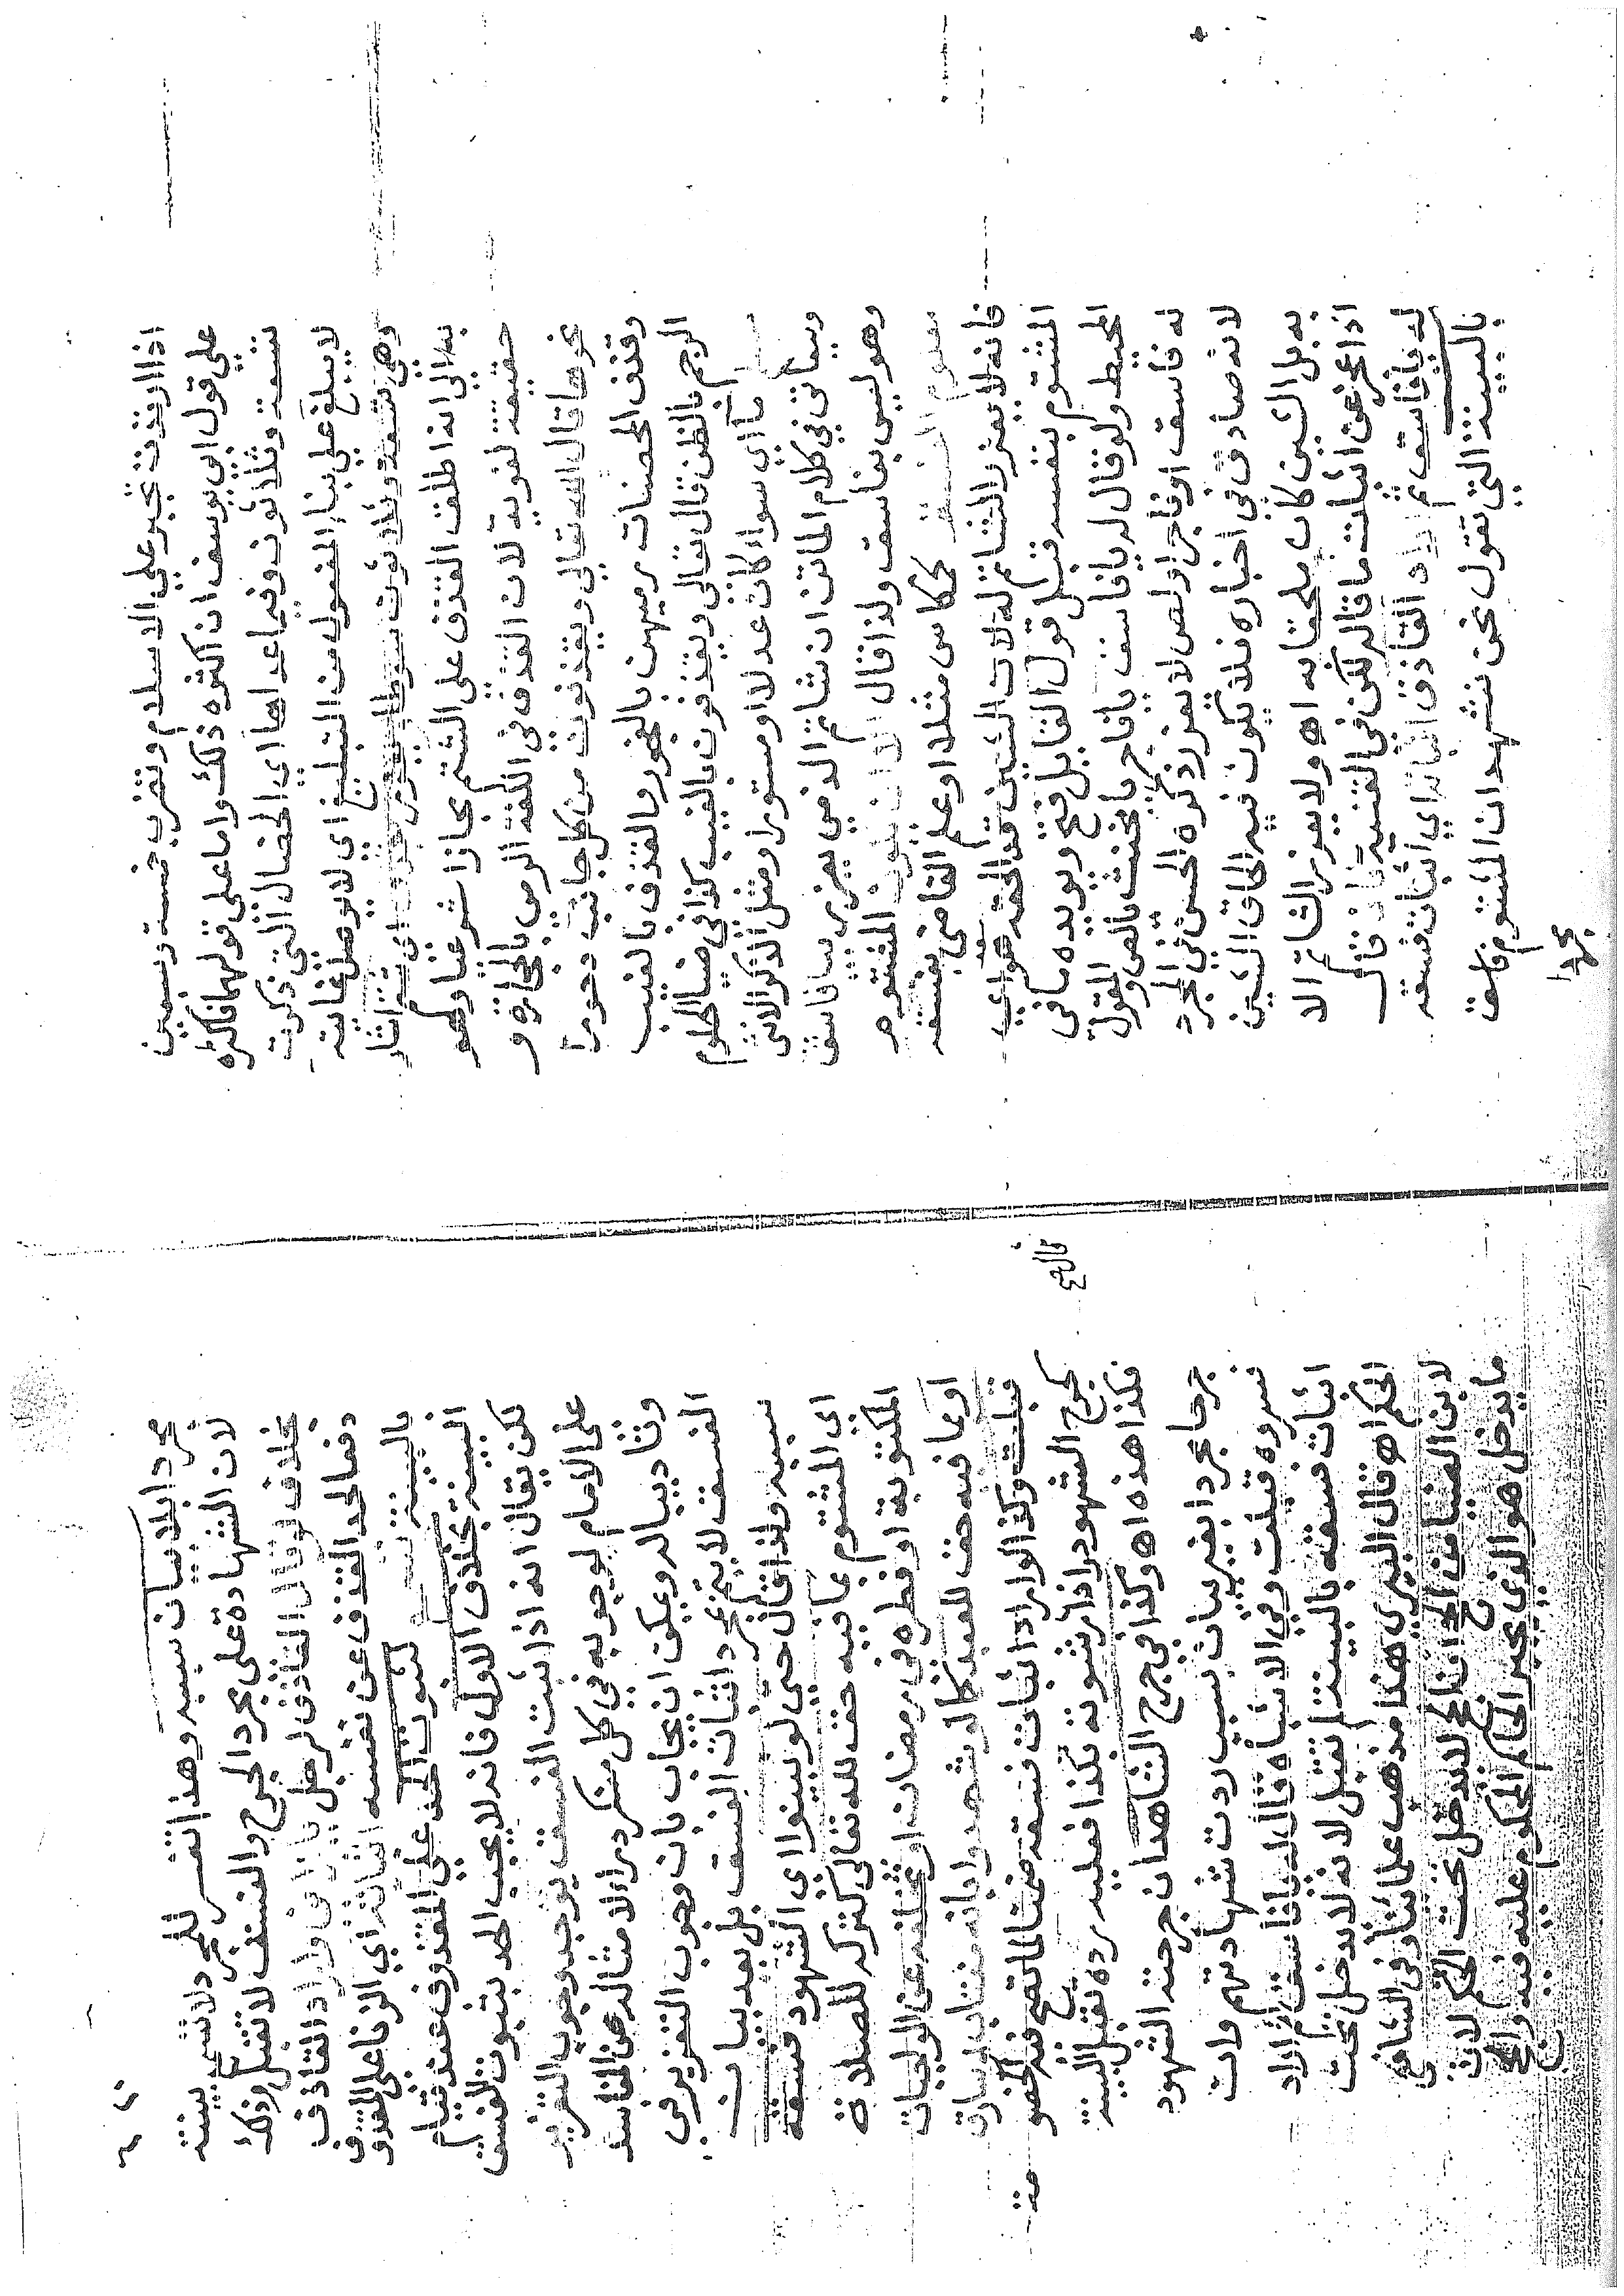 اذا ارتدت تجبر علي الاسلام وتضرب خمسة وسبعين
علي قول ابي يوسف ان اكثره ذلك واما على قولهما فاكثره
تسعة وثلاثون وفيما عداها اي الخصال التي ذكرت
لا يبلغ علي بناء المفعول من التبليغ اي لا يوصل غايته
وهي تسعة وثلاثون سوطا
به الي انه اطلق القذف على الشتم مجازا شرعيا وهو
حقيقة لغوية لان القذف في اللغة الرمي بالحجارة و
نحوها قال الله تعالى ويقذفون من كل جانب دحورا
وقذف المحصنات رميهن بالفجور والقذف بالغيب
الرجم بالظن قال تعالى ويقذفون بالغيب كذا في ضياء الحلوم
اي سواء كان عدلا او مستورا ومثل الذكر الانثى
وسيأتي في كلام الماتن ان شاتم الذمي يعزر بيا فاسق
وهو ليس بفاسق ولذا قال الا ان يكون المشتوم
معلوم الفسق كمكاس مثلا او علم القاضي بفسقه
فانه لا يعزر الشاتم له لان الشين قد الحقه هو اي
المشتوم بنفسه قبل قول القايل فتح ويويده ما في
المحيط ولو قال له يا فاسق يا فاجر يا مخنث يا لص والمقول
له فاسق او فاجر او لص لا يعزر ذكره الحسن في المجرد
لانه صادق في اخباره فلا يكون فيه الحاق الشين
به بل الشين كان ملحقا به اه ولا يعزر الشاتم الا
اذا عجز عن اثبات ما قاله لكن في القنية قال
له يا فاسق ثم اراد القاذف اثباته اي اثبات فسقه
بالبينة التي تقول نحن نشهد ان المشتوم فاسق
مجردا
مجردا بلا بيان سببه وهذا تفسير للمجرد لا تسمع بينته
لان الشهادة على مجرد الجرح والفسق لا تقبل وذلك
بخلاف لو قال القاذف لرجل يا زاني واراد القاذف
دفعا لحد القذف عن نفسه اثباته اي الزنا على المقذوف
بالبينة لثبوت الحد علي المقذوف عند قيام
البينة بخلاف الاول فانه لا يجب الحد بثبوت الفسق
لكن يقال انه اذا ثبت الفسق يوجد وجوب التعزير
على الامام لوجوبه في كل منكر درءا لامثاله عن المفاسد
وتاديبا له ويمكن ان يجاب بان وجوب التعزير في
الفسق لا يتم بمجرد اثبات الفسق بل بعد بيان
سببه ولذا قال حتى لو بينوا اي الشهود فسقه
اي المشتوم بما فيه حق لله تعالى كتركه للصلاة
المكتوبة او فطره في رمضان او تخلفه عن الواجبات
او بما فيه حق للعبد كما لو شهدوا بانه
قبلت وكذا لو اراد اثبات فسقه ضمنا لما تصح فيه الخصومة
كجرح الشهود اذا رشوته بكذا فعليه رده تقبل البينة
فكذا هذه اه وكذا في جرح الشاهدان جرحته الشهود
جرحا مجردا بغير بيان سبب ردت شهادتهم وان
فسروه قبلت وفي الاشباه قال له يا فاسق ثم اراد
اثبات فسقه بالبينة لم تقبل لانه لا يدخل تحت
الحكم اه قال البيري هذا مذهب علمائنا وفي الشافي
لابن الضيا من الجرح لا يدخل تحت الحكم لان
ما يدخل هو الذي يجبر الحاكم المحكوم عليه فيه